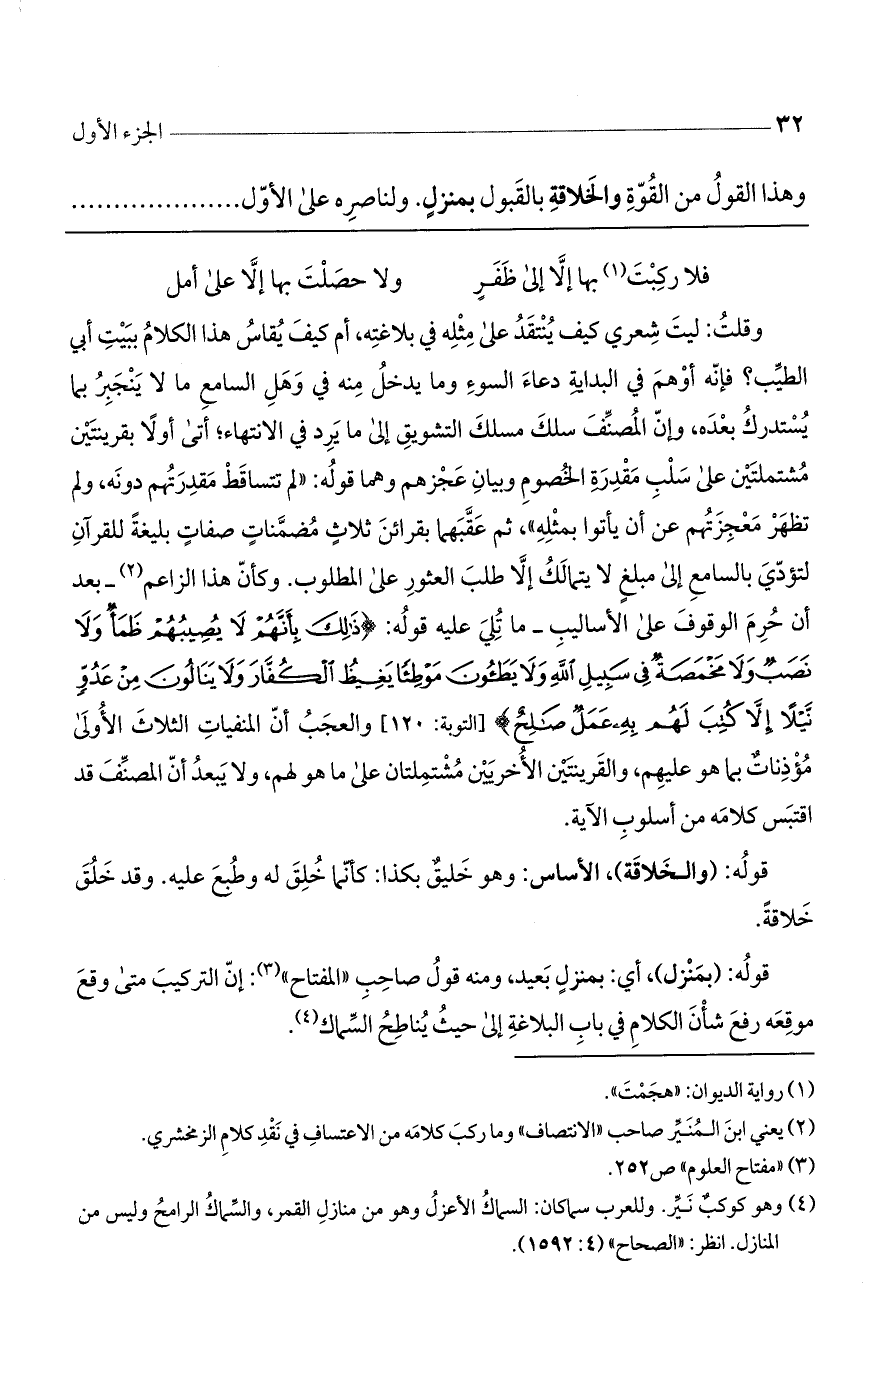 ٣٢ الجزء الأول
وهذا القولُ من القُوّةِ والخَلاقةِ بالقَبول بمنزلٍ. ولناصرِه علىٰ الأوّل....................
فلا ركِبْتَ(١) بها إلَّا إلىٰ ظَفَرٍ ولا حصَلْتَ بها إلَّا علىٰ أمل
وقلتُ: ليتَ شِعري كيف يُنْتقَدُ علىٰ مِثْلِه في بلاغتِه، أم كيفَ يُقاسُ هذا الكلامُ ببَيْتِ أبي
الطيِّب؟ فإنّه أوْهمَ في البدايةِ دعاءَ السوءِ وما يدخلُ مِنه في وَهَلِ السامعِ ما لا يَنْجَبِرُ بما
يُسْتدركُ بعْدَه، وإنّ المُصنِّفَ سلكَ مسلكَ التشويقِ إلىٰ ما يَرِد في الانتهاء؛ أتىٰ أولًا بقرينتَيْن
مُشتملتَيْن علىٰ سَلْبِ مَقْدِرَةِ الخُصومِ وبيانِ عَجْزهم وهما قولُه: «لم تتساقَطْ مَقدِرَتُهم دونَه، ولم
تظهَرْ مَعْجِزَتُهم عن أن يأتوا بمثلِهِ»، ثم عَقَّبَهما بقرائنَ ثلاثٍ مُضمَّناتٍ صفاتٍ بليغةً للقرآنِ
لتؤدّيَ بالسامعِ إلىٰ مبلغٍ لا يتمالَكُ إلَّا طلبَ العثورِ علىٰ المطلوب. وكأنّ هذا الزاعم(٢) ـ بعد
أن حُرِمَ الوقوفَ علىٰ الأساليبِ ـ ما تُلِيَ عليه قولُه: ﴿ذَٰلِكَ بِأَنَّهُمْ لَا يُصِيبُهُمْ ظَمَأٌ وَلَا
نَصَبٌ وَلَا مَخْمَصَةٌ فِي سَبِيلِ ٱللَّهِ وَلَا يَطَـُٔونَ مَوْطِئًا يَغِيظُ ٱلْكُفَّارَ وَلَا يَنَالُونَ مِنْ عَدُوٍّ
نَّيْلًا إِلَّا كُتِبَ لَهُم بِهِۦ عَمَلٌ صَٰلِحٌ﴾ [التوبة: ١٢٠] والعجَبُ أنّ المنفياتِ الثلاثَ الأُولَىٰ
مُؤْذِناتٌ بما هو عليهم، والقَرينتَيْن الأُخريَيْن مُشْتمِلتان علىٰ ما هو لهم، ولا يَبعدُ أنّ المصنِّفَ قد
اقتبَس كلامَه من أسلوبِ الآية.
قولُه: (والـخَلاقَة)، الأساس: وهو خَليقٌ بكذا: كأنّما خُلِقَ له وطُبعَ عليه. وقد خَلُقَ
خَلاقةً.
قولُه: (بمَنْزل)، أي: بمنزلٍ بَعيد، ومنه قولُ صاحبِ «المفتاح»(٣): إنّ التركيبَ متىٰ وقعَ
موقِعَه رفعَ شأْنَ الكلامِ في بابِ البلاغةِ إلىٰ حيثُ يُناطِحُ السِّماك(٤).
(١) رواية الديوان: «هجَمْتَ».
(٢) يعني ابنَ الـمُنَيِّر صاحب «الانتصاف» وما ركبَ كلامَه من الاعتسافِ في نَقْدِ كلامِ الزمخشري.
(٣) «مفتاح العلوم» ص٢٥٢.
(٤) وهو كوكبٌ نَيِّر. وللعرب سماكان: السماكُ الأعزلُ وهو من منازلِ القمر، والسِّماكُ الرامحُ وليس من
المنازل. انظر: «الصحاح» (٤: ١٥٩٢).